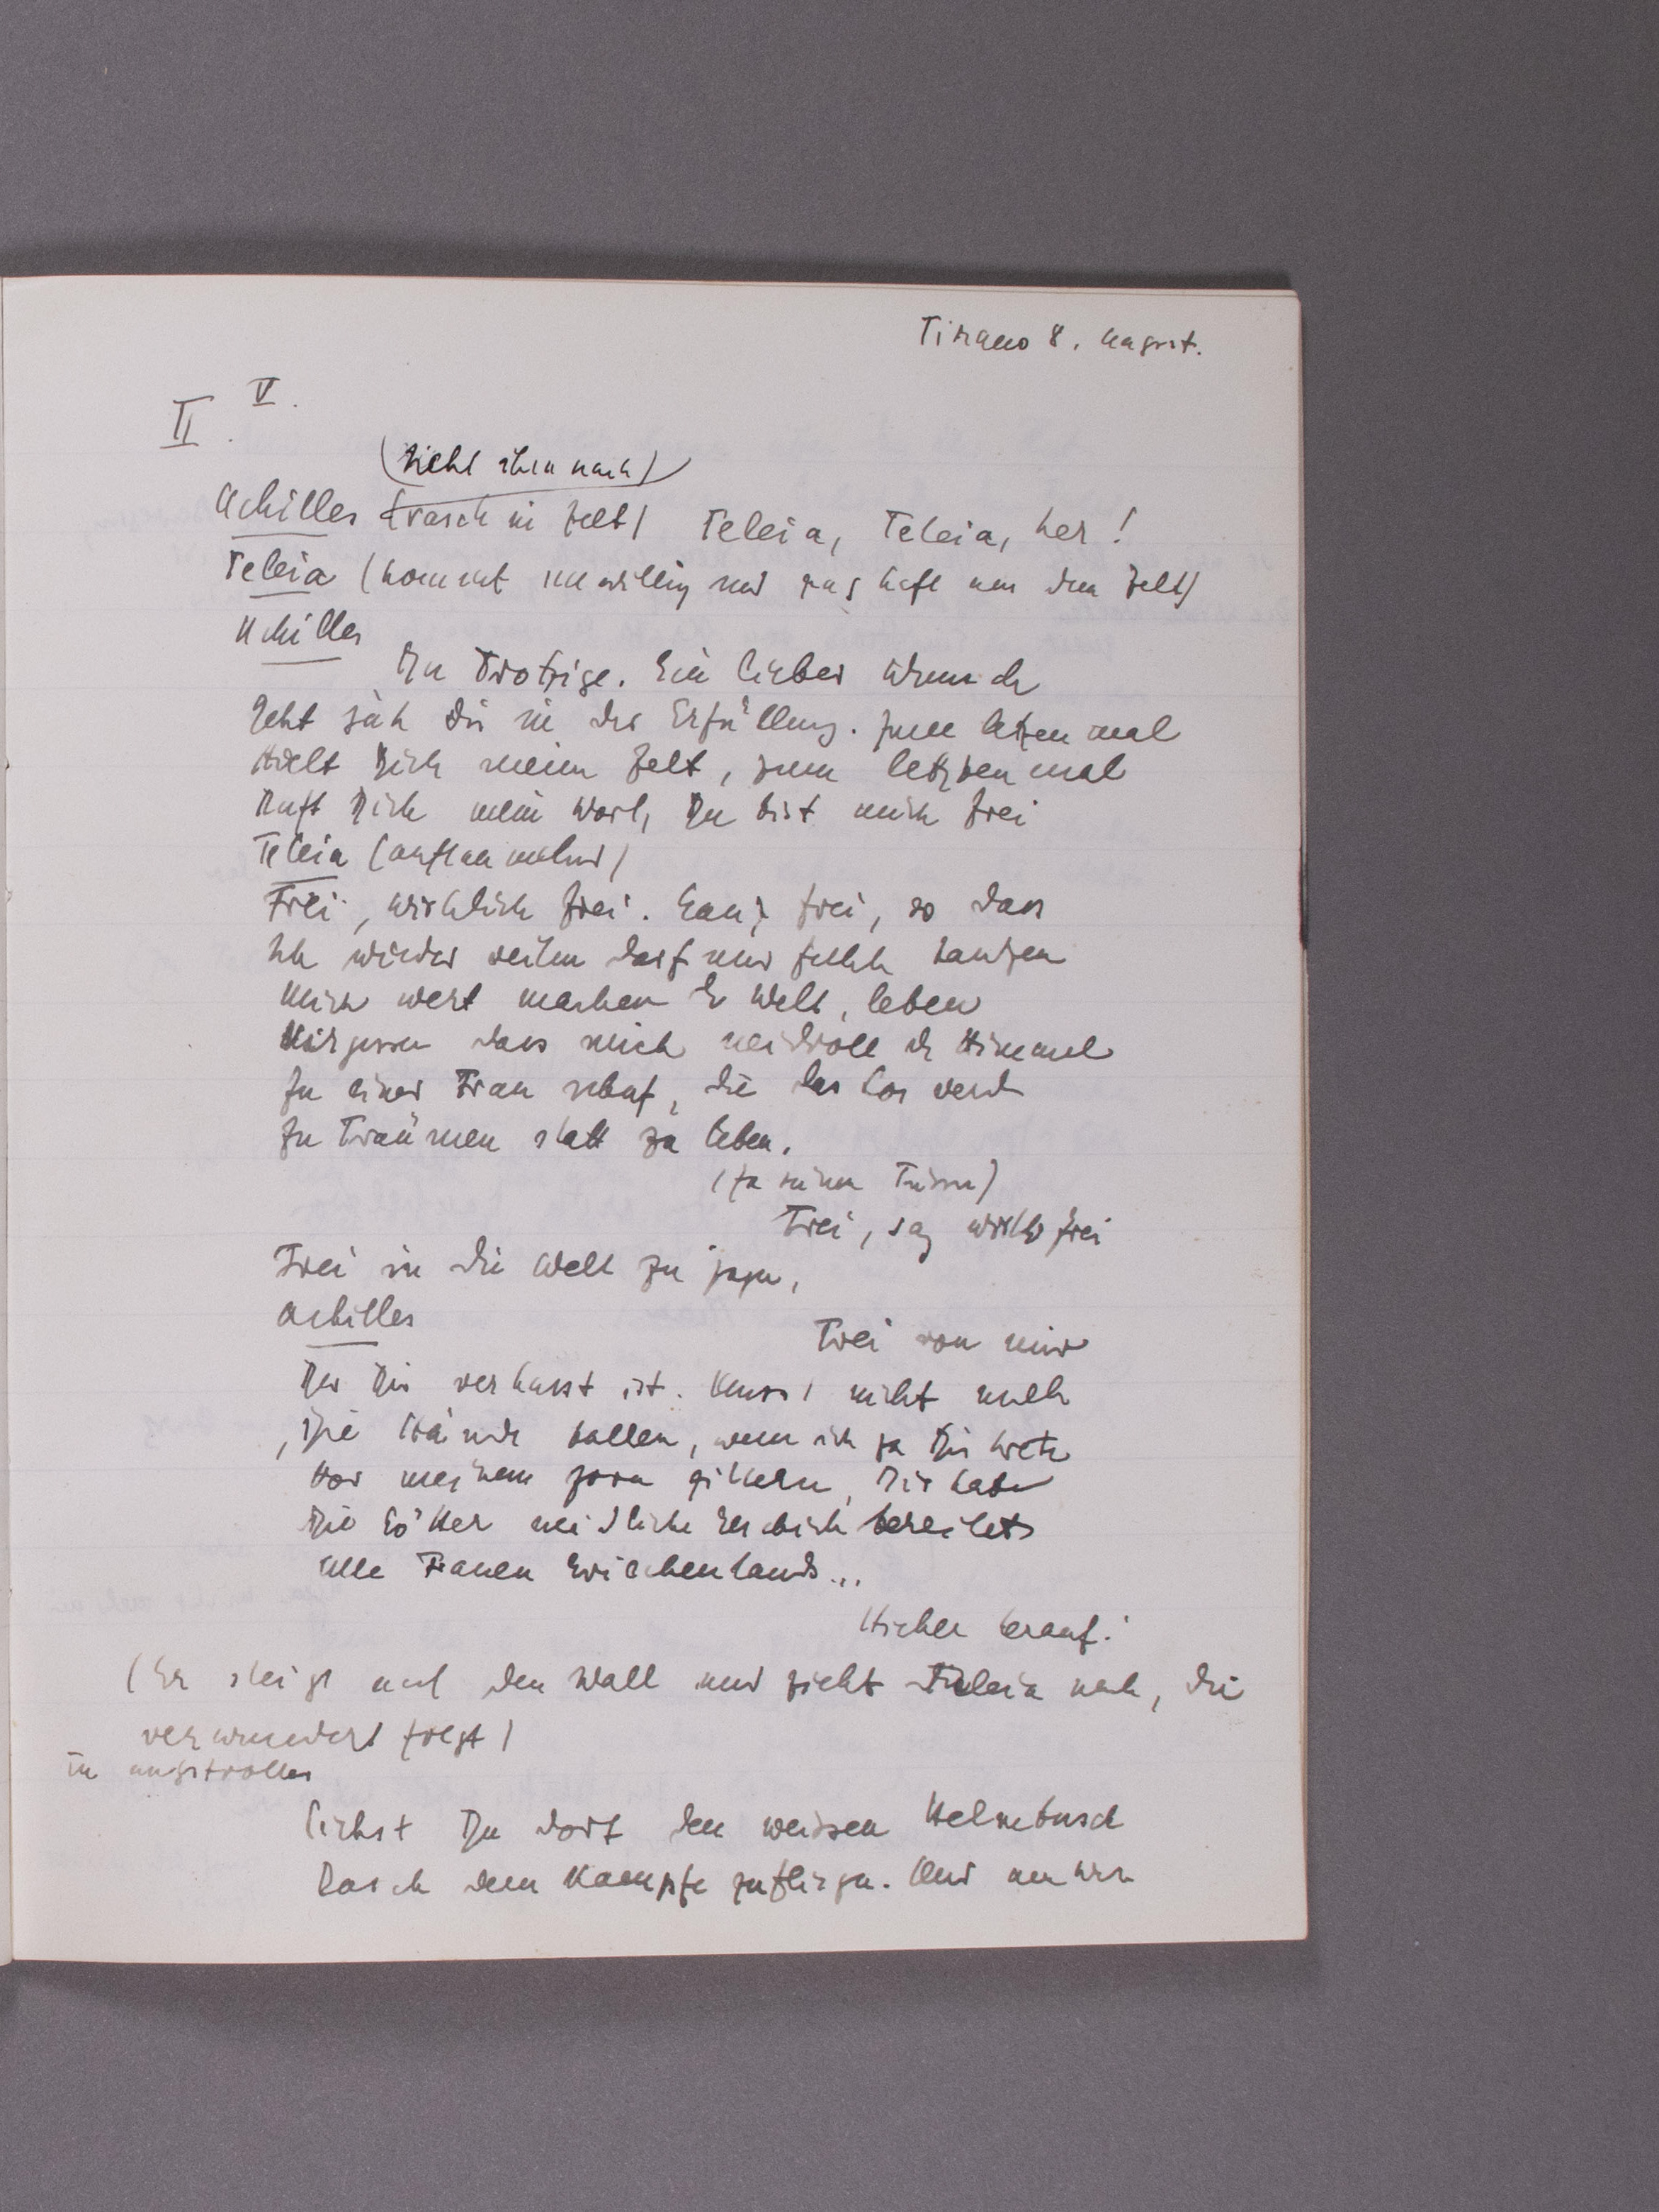 Tirano 8. August.
II. V.
(zieht ihn nach)
Achilles (rasch in Zelt) Teleia, Teleia, her!
Teleia (kommt unwillig und zaghaft aus dem Zelt)
Achilles
Du Trotzige. Ein lieber Wunsch
Geht jäh dir in die Erfüllung. Zum letzten mal
Hielt Dich mein Zelt, zum letzten mal
Ruft Dich mein Wort, Du bist frei
Teleia (aufflammend)
Frei, wirklich frei. Ganz frei, so dass
Ich wieder reiten darf und tanzen
Mich wert machen der Welt, leben
Vergessen dass mich neidvoll der Himmel
Zu einer Frau schuf, die das Los
Zu träumen statt zu leben.
(zu seinen Füssen)
Frei, sag wirkl frei
Frei in die Welt zu jagen,
Achilles
Frei von mir
Der Dir verhasst ist. Musst nicht mehr
Die Hände ballen, wenn ich zu Dir trete
Vor meinem Zorn zittern, Dir haben
Die Götter neidliche bereitet
Alle Frauen Griechenlands...
Hieher herauf!
(Er steigt auf den Wall und zieht Teleia nach, die
verwundert folgt)
in angstvoller
Siehst Du dort den weissen Helmbusch
Rasch dem Kampfe zufliegen. Und